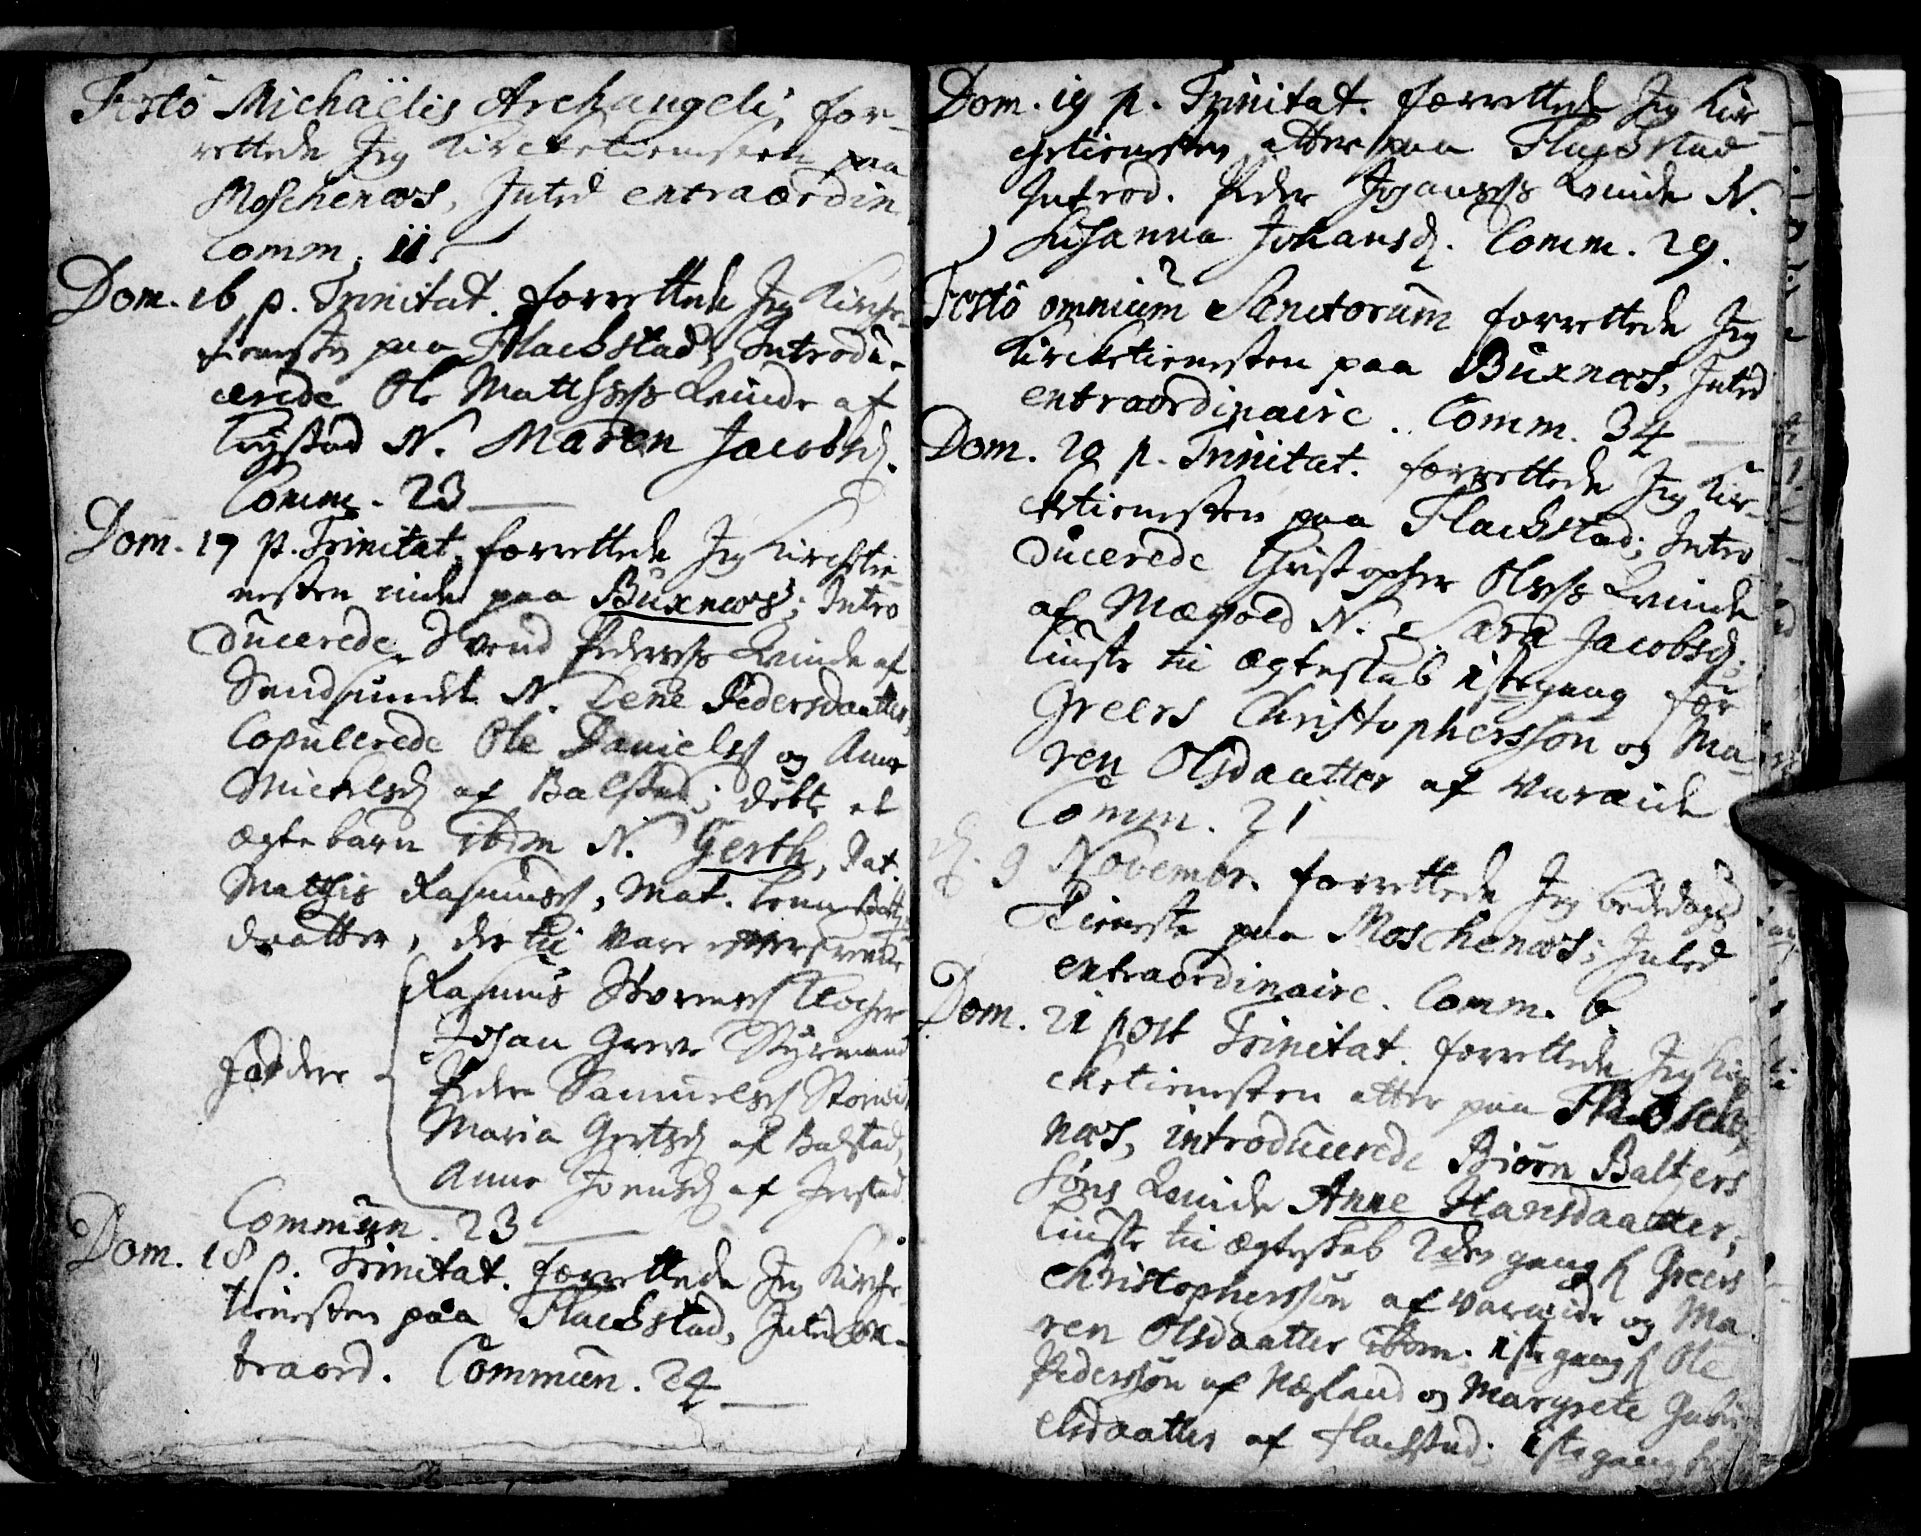 Festo Michaëlis Archangeli, for-
rettede Jeg Kircketienesten paa
Moschenæs, Inted extraordin
Comm. 11.
Dom. 16 p. Trinitat. forrettede Jeg Kircke-
tienesten paa Flackstad, Introdu-
cerede Ole Mattissøns Kvinde af
N. Maren Jacobsd.
Comm. 23
Dom. 17 p. Trinitat. forrettede Jeg Kircketie-
nesten inde paa Buxnæs; Intro
ducerede Svend Pedersøns Kvinde af
Sandsundet N. Lene Pedersdaatter,
Copulerede Ole Daniels. og Anne
Michelsd. af Balstad; døbte et
ægte barn ibidem N. Gerth, Pat.
Mathis Rasmuss., Mat.
daatter, der til vare
Faddere
Rasmus Klocher
Johan Greve Styrmand
Peder Samuelss.
Maria Gertsd. af Balstad,
Anne Joensd. af
Commun. 23
Dom. 18 p. Trinitat. forrettede Jeg Kircke-
tienesten paa Flackstad, Inted ex-
traord. Commun. 24
Dom. 19 p. Trinitat. forrettede Jeg Kir-
chetienesten atter paa Flackstad
Introd. Peder Johansøns Kvinde N.
Susanna Johansd. Comm. 29.
Festo omnium Sanctorum forrettede Jeg
Kircketienesten paa Buxnæs, Inted
extraordinaire. Comm. 34
Dom. 20 p. Trinitat. forrettede Jeg Kir-
cketienesten paa Flackstad; Intro
ducerede Christopher Olsøns Kvinde
af N. Sara Jacobsd;
liuste til ægteskab 1ste gang for
Greers Christopherssøn og Ma-
ren Olsdaatter af Vareide
Comm. 21
d. 9 Novembr. forrettede Jeg bededags
Tieneste paa Moschenæs; Inted
extraordinaire. Comm. 6
Dom. 21 post Trinitat. forrettede Jeg Kir
cketienesten atter paa Mosche
næs, introducerede Biørn Balzers
søns Kvinde Anne Hansdaatter;
liuste til ægteskab 2den gang f. Greers
Christopherssøn af Vareide og Ma
ren Olsdaatter ibdm. 1ste gang f. Ole
Pederssøn af Næsland og Margrete Gabri
elsdaatter af Flackstad; 1ste gang for